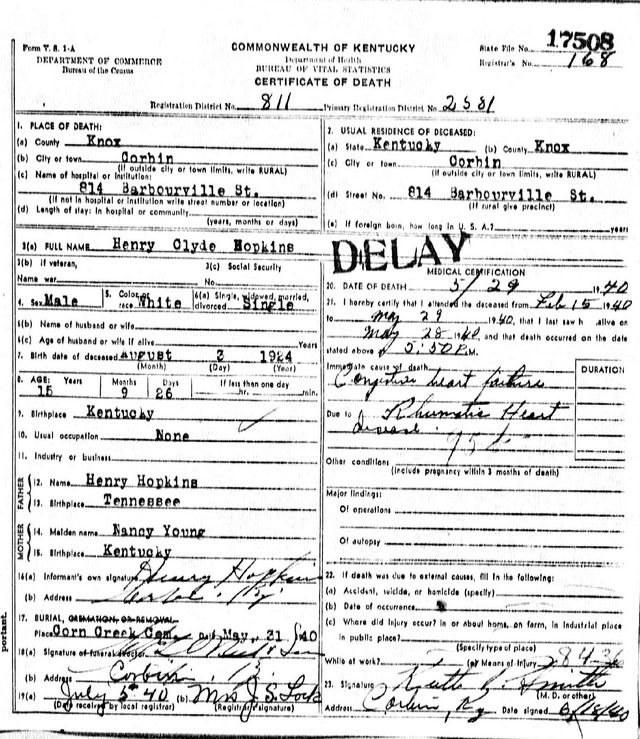 Form V. S. 1-A
DEPARTMENT OF COMMERCE
Bureau of the Census
COMMONWEALTH OF KENTUCKY
Department of Health
BUREAU OF VITAL STATISTICS
CERTIFICATE OF DEATH
State File No. 17508
Registrar's No. 168
Registration District No. 811 Primary Registration District No. 2381
1. PLACE OF DEATH:
(a) County Knox
(b) City or town Corbin
(If outside city or town limits, write RURAL)
(c) Name of hospital or institution:
814 Barbourville St.
(If not in hospital or institution write street number or location)
(d) Length of stay: In hospital or community
(years, months or days)
2. USUAL RESIDENCE OF DECEASED:
(a) State Kentucky (b) County Knox
(c) City or town Corbin
(If outside city or town limits, write RURAL)
(d) Street No. 814 Barbourville St.
(If rural give precinct)
(e) If foreign born, how long in U. S. A.? years
3(a) FULL NAME Henry Clyde Hopkins
3(b) If veteran, 3(c) Social Security
Name war No.
4. Sex Male 5. Color or race White 6(a) Single, widowed, married, divorced Single
6(b) Name of husband or wife
6(c) Age of husband or wife if alive Years
7. Birth date of deceased August 3 1924
(Month) (Day) (Year)
8. AGE: Years Months Days If less than one day
15 9 26 hr. min.
9. Birthplace Kentucky
10. Usual occupation None
11. Industry or business
FATHER
12. Name Henry Hopkins
13. Birthplace Tennessee
MOTHER
14. Maiden name Nancy Young
15. Birthplace Kentucky
16(a) Informant's own signature Henry Hopkins
(b) Address Ky
17. BURIAL, CREMATION, OR REMOVAL
Place Corn Creek Cem. Date May, 31 1940
18(a) Signature of funeral director
(b) Address Corbin, Ky
19(a) July 5-40 (b) Mrs J. S. Lock
(Date received by local registrar) (Registrar's signature)
DELAY
MEDICAL CERTIFICATION
20. DATE OF DEATH 5/29 1940
21. I hereby certify that I attended the deceased from Feb 15 1940
to May 29 1940, that I last saw h alive on
May 28 1940, and that death occurred on the date
stated above at 5:50 P.M.
Immediate cause of death DURATION
Congestive heart failure
Due to Rhumatic Heart
disease
Other conditions
(Include pregnancy within 3 months of death)
Major findings:
Of operations
Of autopsy
22. If death was due to external causes, fill in the following:
(a) Accident, suicide, or homicide (specify)
(b) Date of occurrence
(c) Where did injury occur? In or about home, on farm, in industrial place
in public place?
(Specify type of place)
While at work? (e) Means of injury
23. Signature Smith
(M. D. or other)
Address Corbin, Ky Date signed 6/18/40
portant.